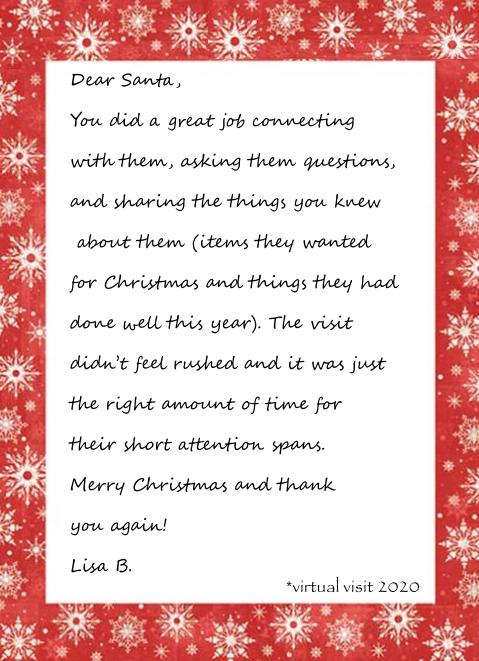 Dear Santa,
You did a great job connecting
with them, asking them questions,
and sharing the things you knew
about them (items they wanted
for Christmas and things they had
done well this year). The visit
didn't feel rushed and it was just
the right amount of time for
their short attention spans.
Merry Christmas and thank
you again!
Lisa B.
*virtual visit 2020